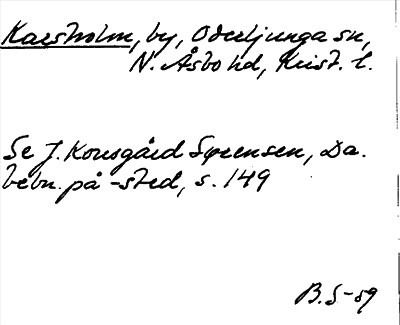 Karsholm, by, Oderljunga sn,
N. Åsbo hd, Krist. l.
Se J. Kousgård Sørensen, Da.
bebn. på -sted, s. 149
B.S-59